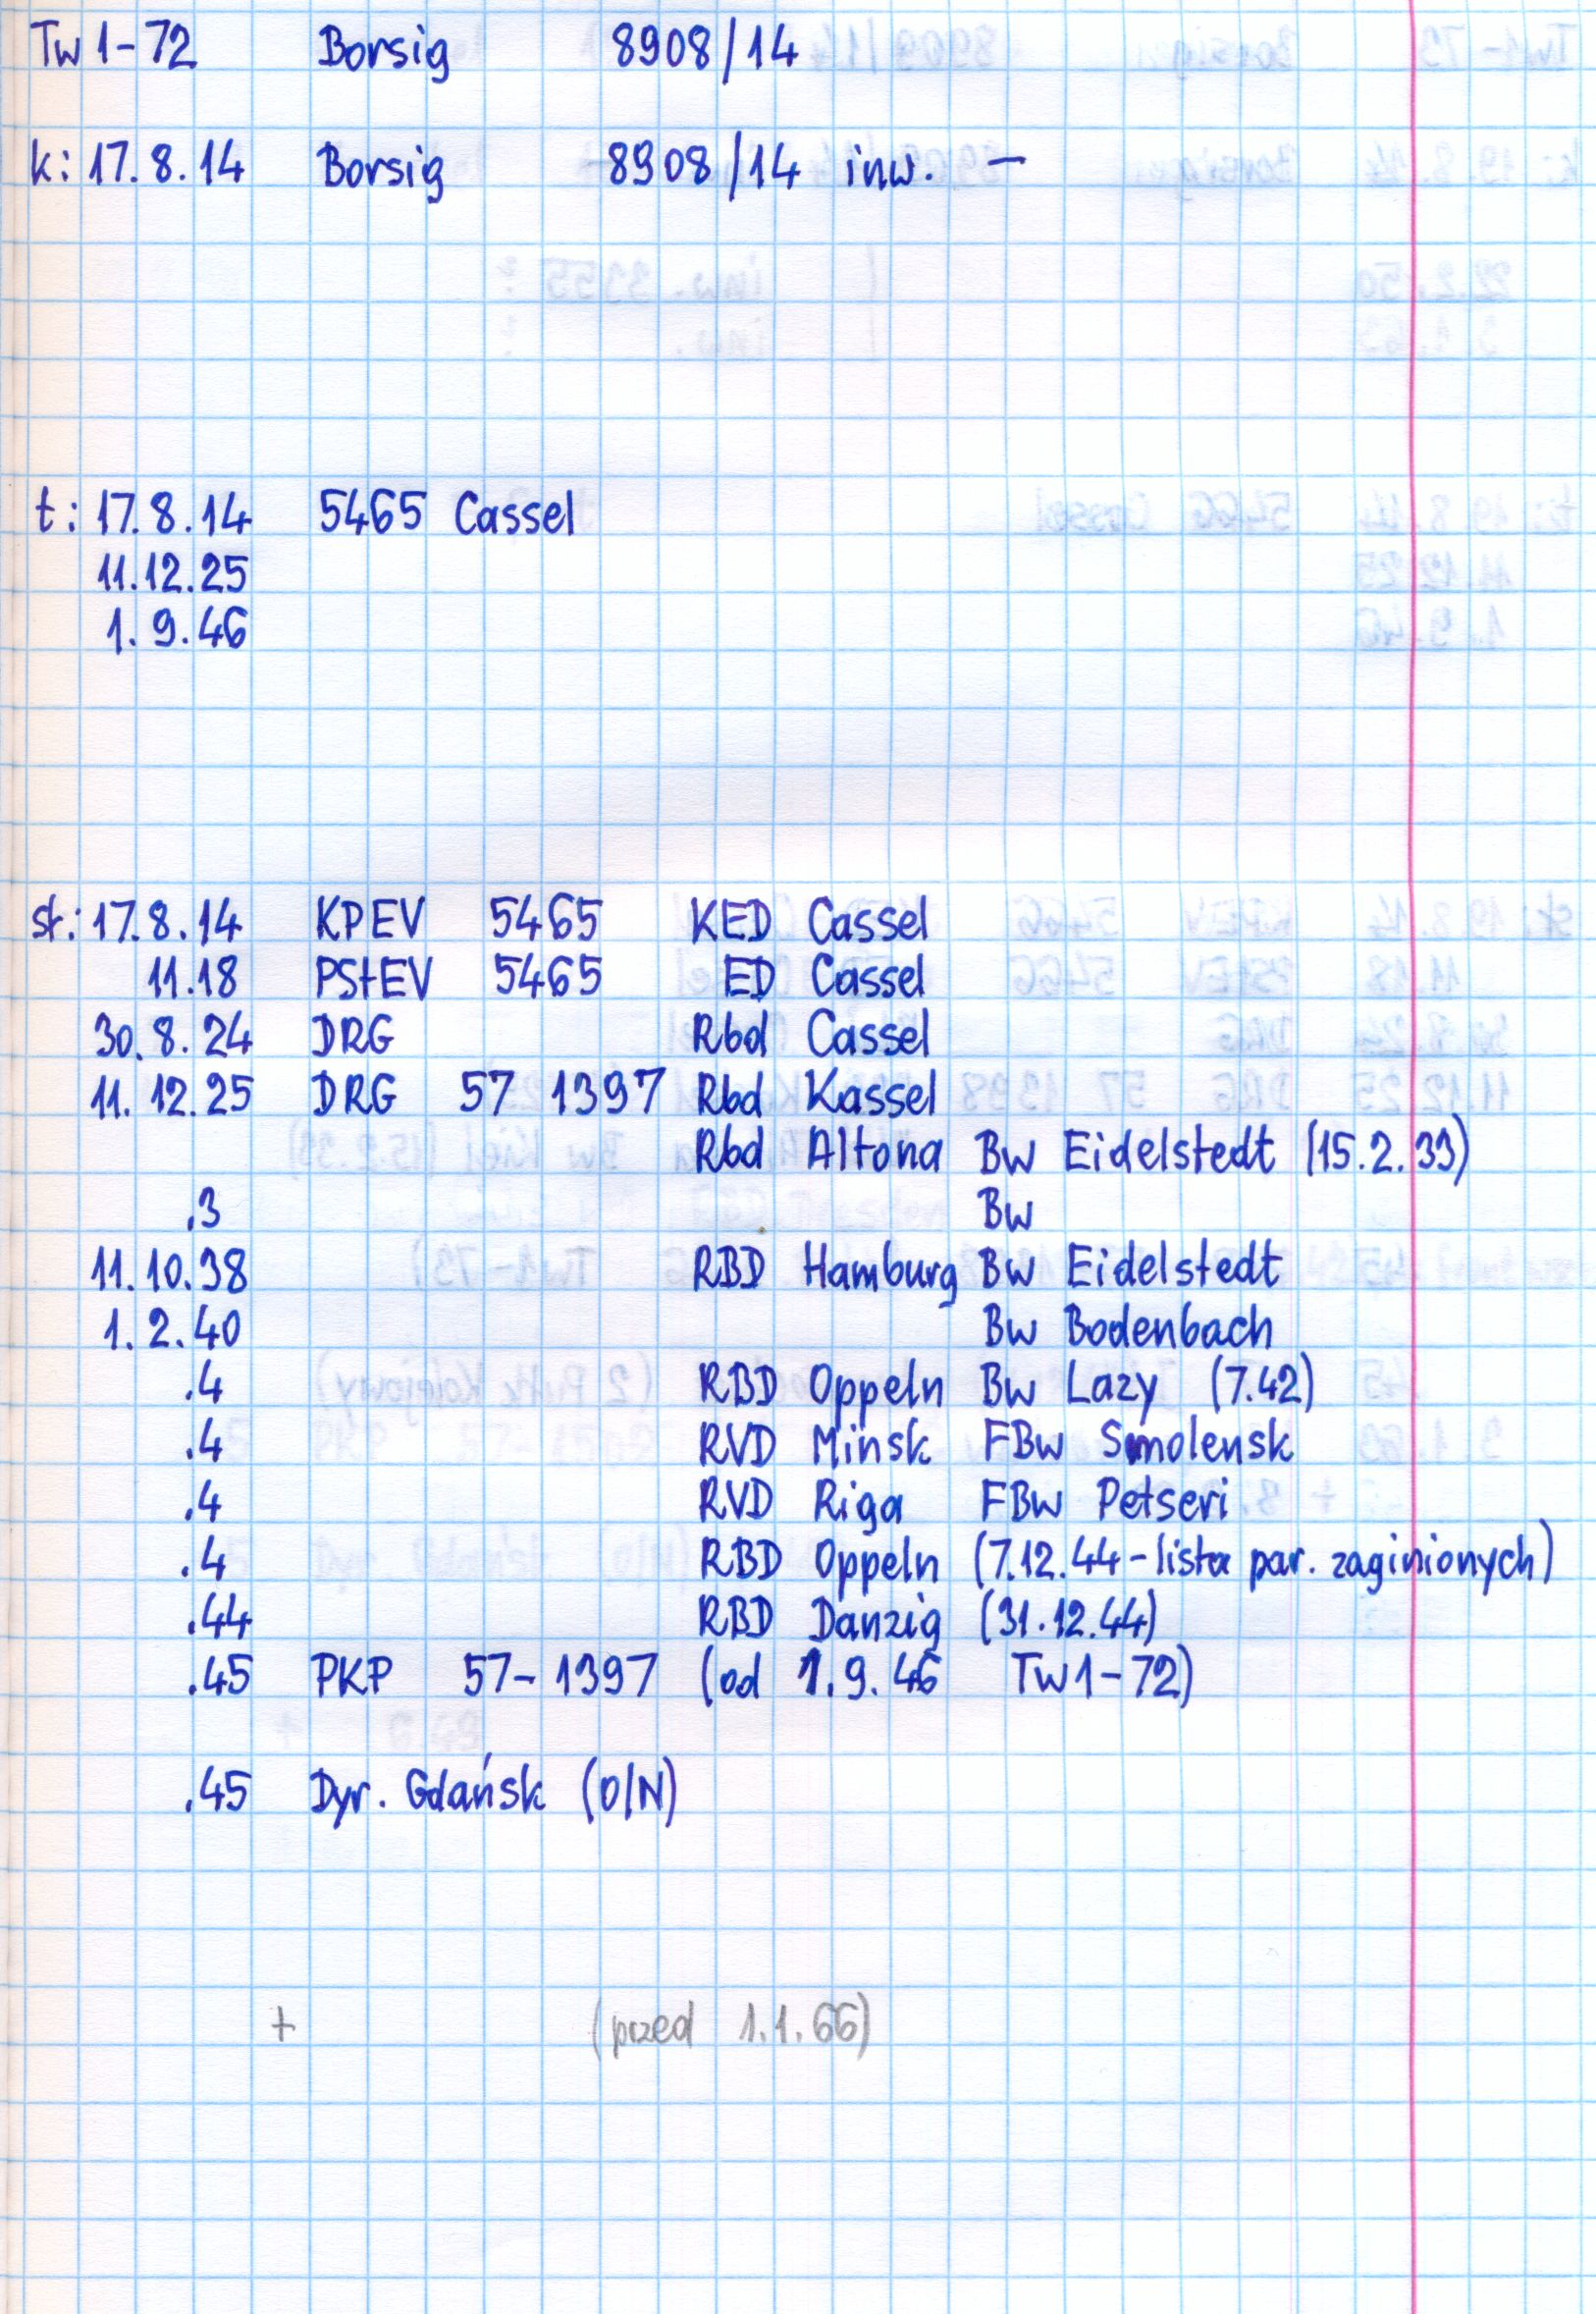 Tw 1-72 Borsig 8908/14
k: 17.8.14 Borsig 8908/14 inw. –
t: 17.8.14 5465 Cassel
11.12.25
1.9.46
st: 17.8.14 KPEV 5465 KED Cassel
11.18 PStEV 5465 ED Cassel
30.8.24 DRG Rbd Cassel
11.12.25 DRG 57 1397 Rbd Kassel
Rbd Altona Bw Eidelstedt (15.2.33)
.3 Bw
11.10.38 RBD Hamburg Bw Eidelstedt
1.2.40 Bw Bodenbach
.4 RBD Oppeln Bw Lazy (7.42)
.4 RVD Minsk FBw Smolensk
.4 RVD Riga FBw Petseri
.4 RBD Oppeln (7.12.44 – lista par. zaginionych)
.44 RBD Danzig (31.12.44)
.45 PKP 57-1397 (od 1.9.46 Tw1-72)
.45 Dyr. Gdańsk (O/N)
+ (przed 1.1.66)